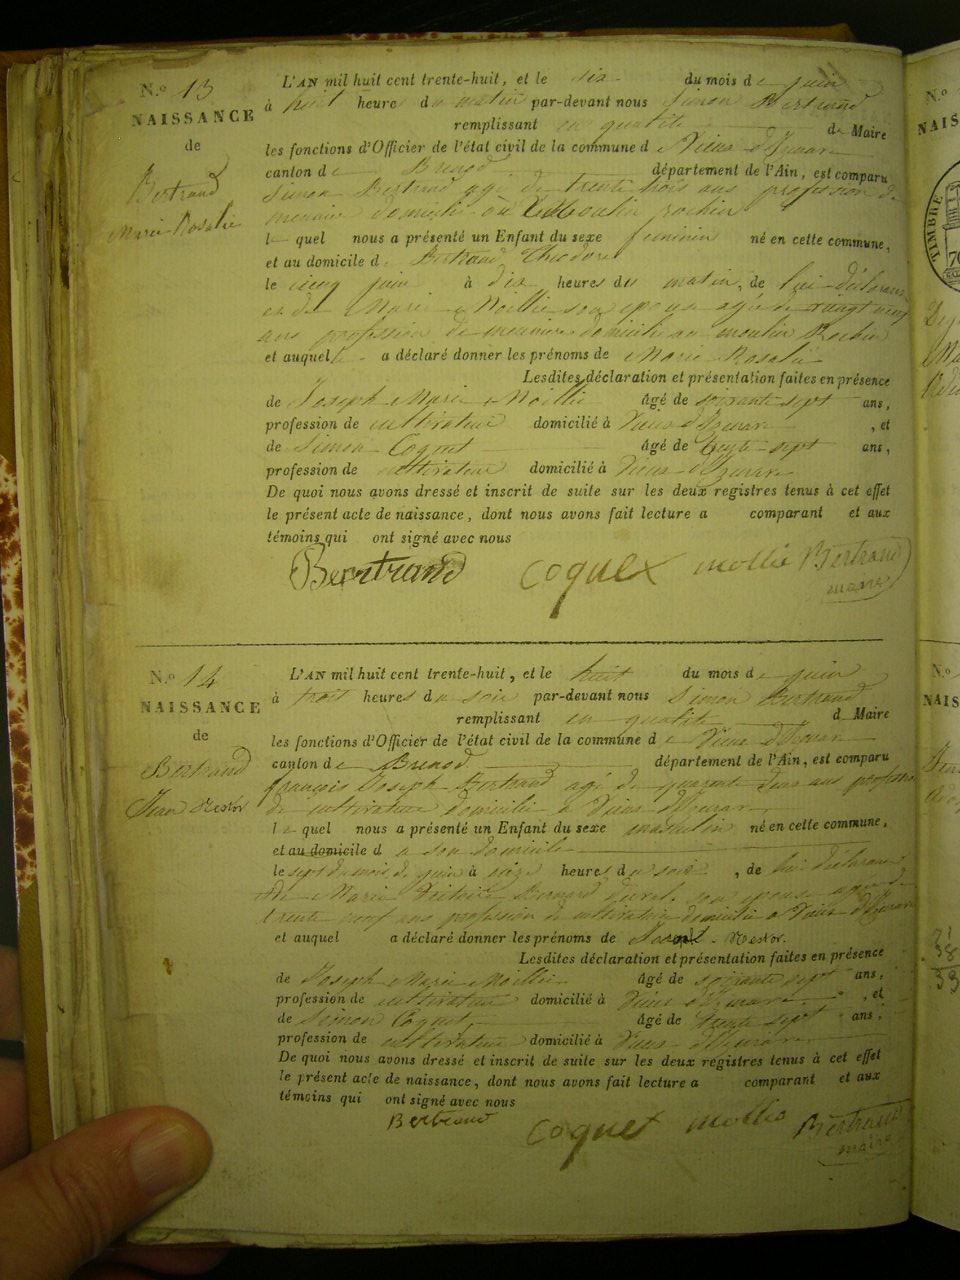 N.o 13
NAISSANCE
de
Bertrand
Marie Rosalie
L'AN mil huit cent trente-huit, et le six du mois de juin
à huit heures du matin par-devant nous Simon Bertrand
remplissant en qualité de Maire
les fonctions d'Officier de l'état civil de la commune de Vieux d'Izenave
canton de Brenod département de l'Ain, est comparu
Simon Bertrand agé de trente trois ans profession de
meunier domicilié au moulin rochin
le quel nous a présenté un Enfant du sexe feminin né en cette commune,
et au domicile de Bertrand Theodore
le cinq juin à dix heures du matin, de lui déclarant
et de Marie Moillie son epouse agée de vingt neuf
ans profession de meunier domicilié au moulin Rochin
et auquel a déclaré donner les prénoms de Marie Rosalie
Lesdites déclaration et présentation faites en présence
de Joseph Marie Moillie âgé de soixante sept ans,
profession de cultivateur domicilié à Vieux d'Izenave, et
de Simon Coquet âgé de trente sept ans,
profession de cultivateur domicilié à Vieux d'Izenave
De quoi nous avons dressé et inscrit de suite sur les deux registres tenus à cet effet
le présent acte de naissance, dont nous avons fait lecture a comparant et aux
témoins qui ont signé avec nous
Bertrand Coquet mollie Bertrand
maire
N.o 14
NAISSANCE
de
Bertrand
Jean Nestor
L'AN mil huit cent trente-huit, et le huit du mois de juin
à trois heures du soir par-devant nous Simon Bertrand
remplissant en qualité de Maire
les fonctions d'Officier de l'état civil de la commune de Vieux d'Izenave
canton de Brenod département de l'Ain, est comparu
françois Joseph Bertrand agé de quarente deux ans profession
de cultivateur domicilié à Vieux d'Izenave
le quel nous a présenté un Enfant du sexe masculin né en cette commune,
et au domicile d a son domicile
le sept du mois de juin à heures du soir, de lui déclarant
et de Marie Victoire son epouse agée de
trente neuf ans profession de cultivatrice domicilié a Vieux d'Izenave
et auquel a déclaré donner les prénoms de Nestor.
Lesdites déclaration et présentation faites en présence
de Joseph Marie Moillie âgé de soixante sept ans,
profession de cultivateur domicilié à Vieux d'Izenave, et
de Simon Coquet, âgé de trente sept ans,
profession de cultivateur domicilié à Vieux d'Izenave
De quoi nous avons dressé et inscrit de suite sur les deux registres tenus à cet effet
le présent acte de naissance, dont nous avons fait lecture a comparant et aux
témoins qui ont signé avec nous
Bertrand Coquet mollie Bertrand
maire
TIMBRE